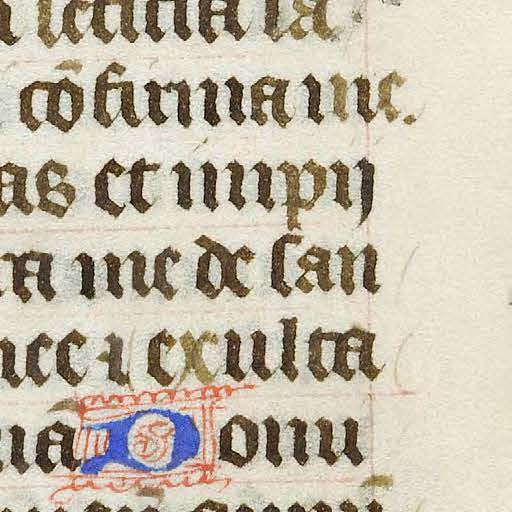 leticia sa
cōfirma me.
as et impij
ra me de san
mee ⁊ exulta
iā Domi